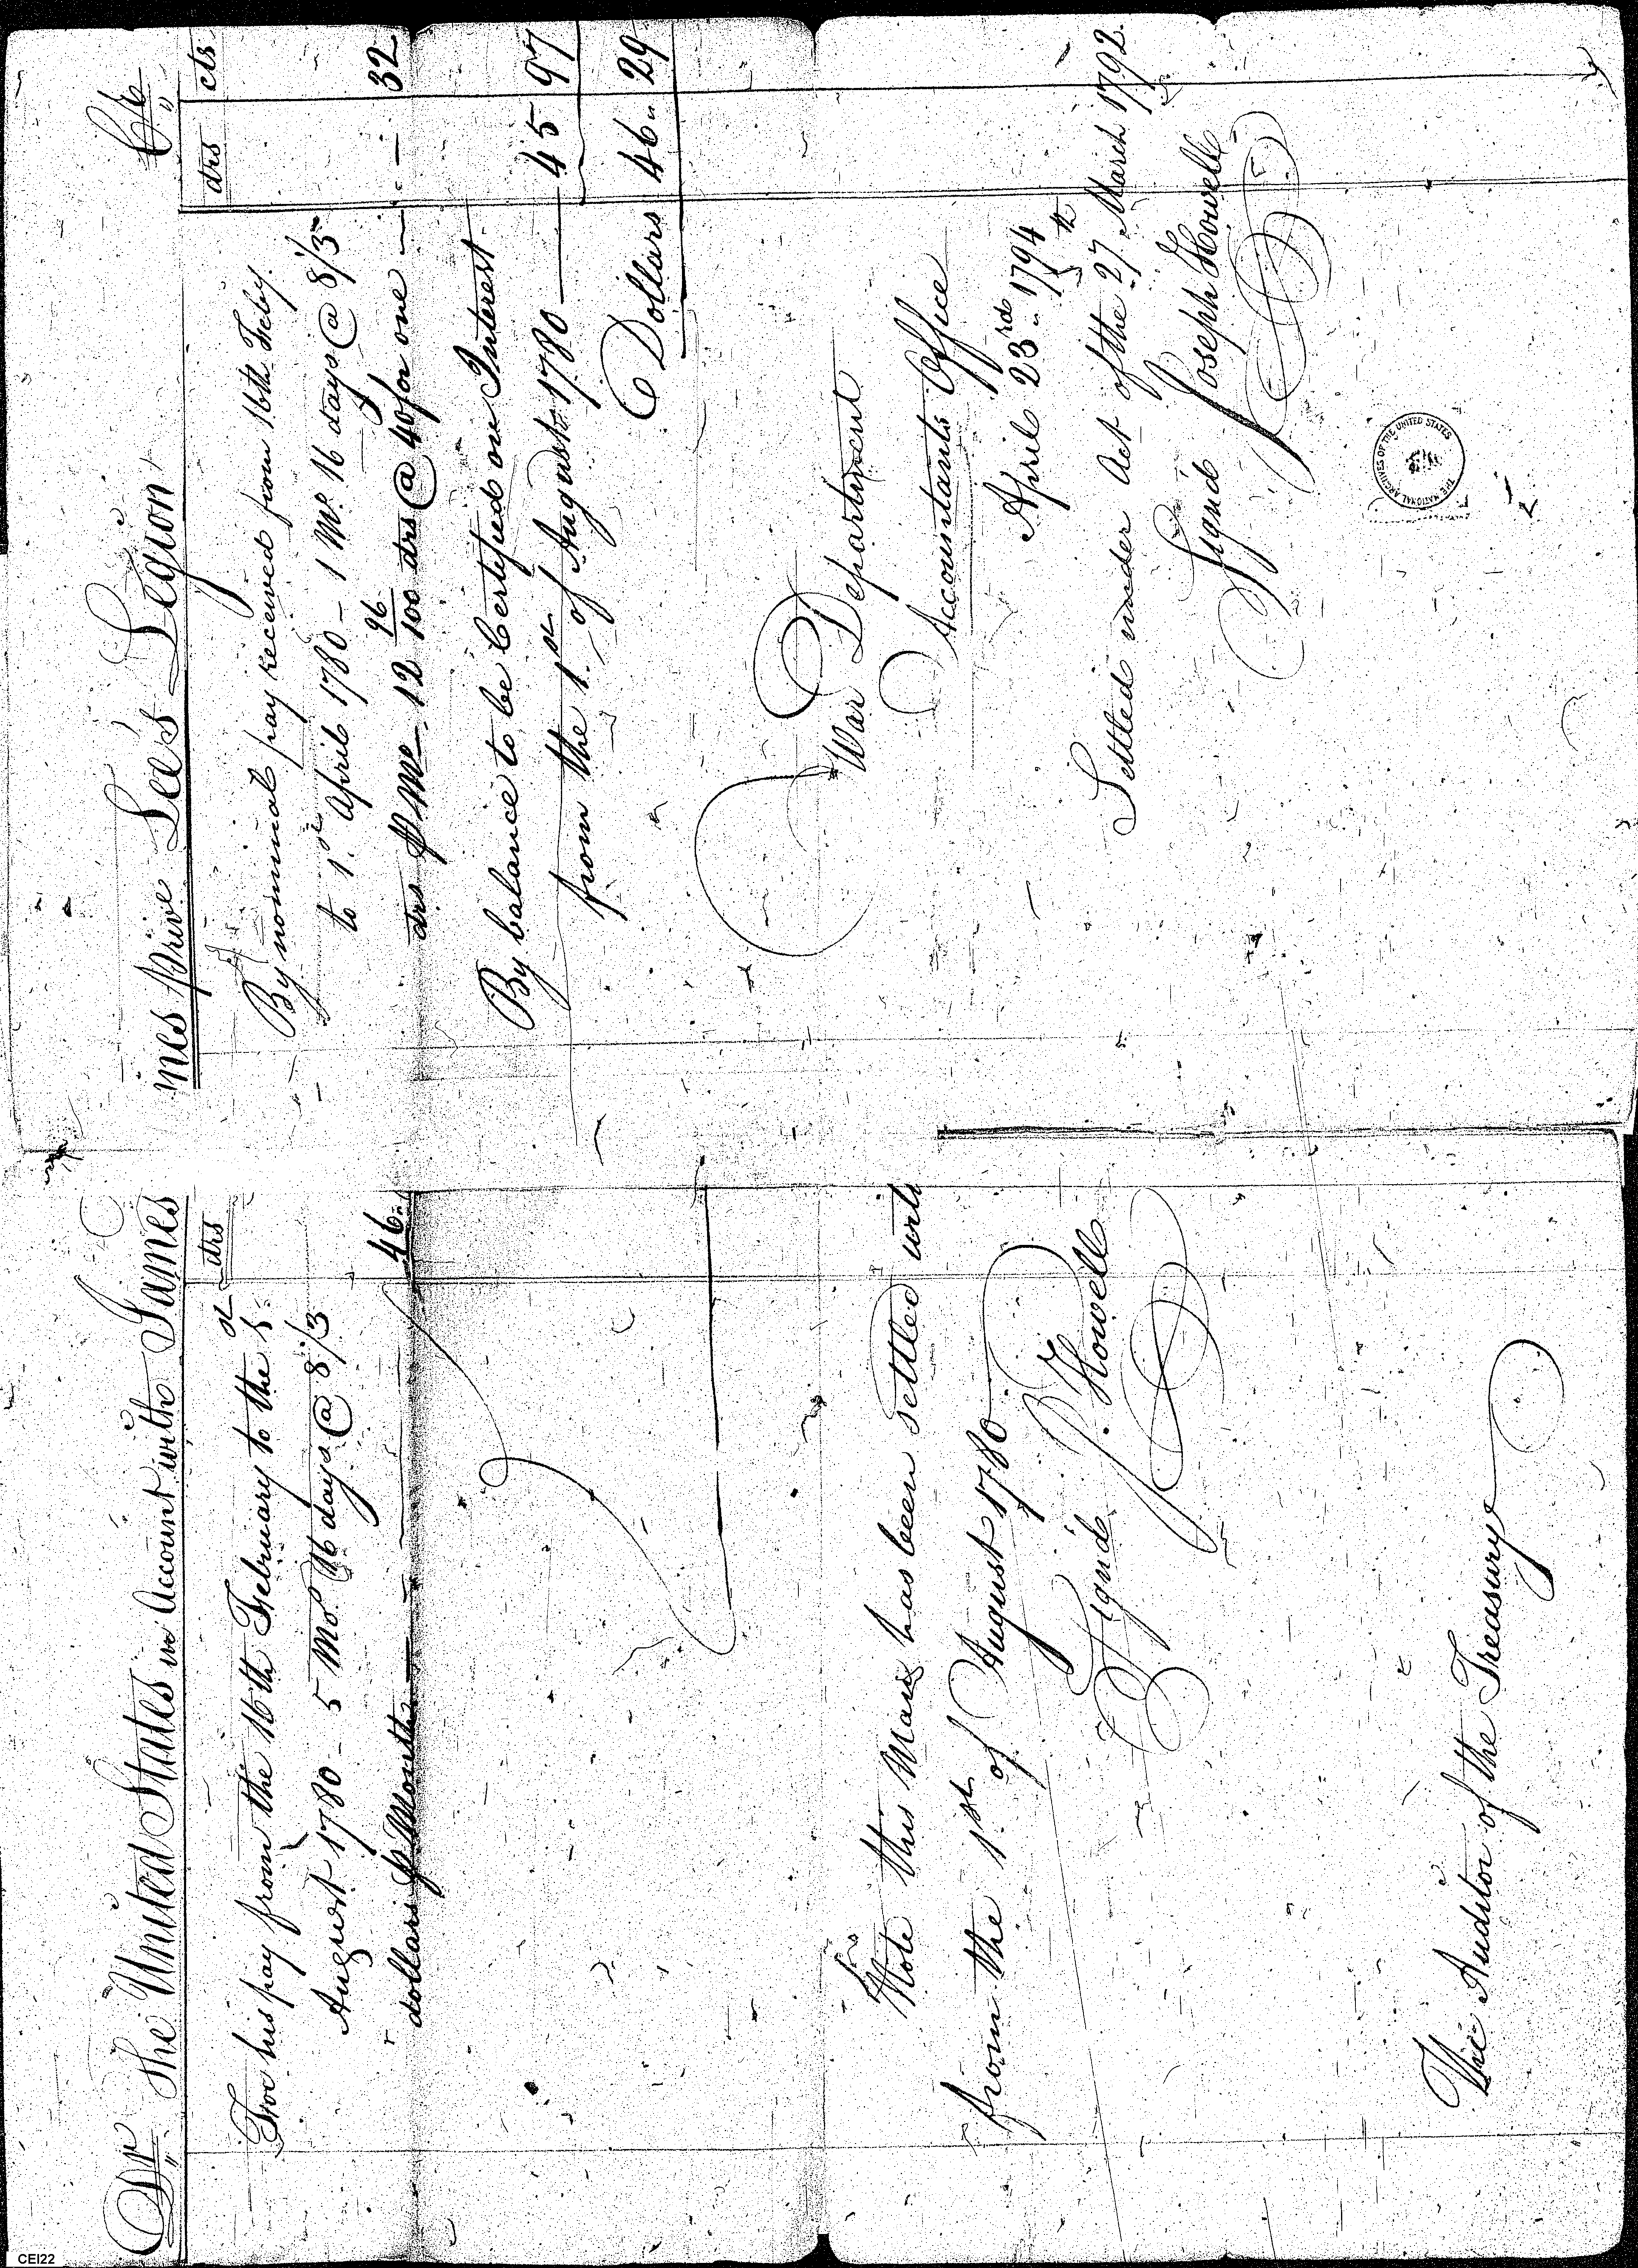 Dr The United States in Account with James
drs
For his pay from the 16th February to the 1st
August 1780 - 5 Mo. 16 days @ 8/3
dollars P Month 46..
Note this Man has been settled with
from the 1st of August 1780
Signd J. Howell
The Auditor of the Treasury
mes prive Lee's Legion Cr
drs cts
By nominal pay received from 16th Feby.
to 1st April 1780 - 1 Mo. 16 days @ 8/3
drs P Mo - 12 96/100 drs @ 40 for one - - 32
By balance to be Certified on Interest
from the 1st of August 1780 45 97
Dollars 46.. 29
War Department
Accountants Office
April 23rd 1794
Settled under Act of the 27th March 1792.
Signd Joseph Howell
THE NATIONAL ARCHIVES OF THE UNITED STATES
CEI22